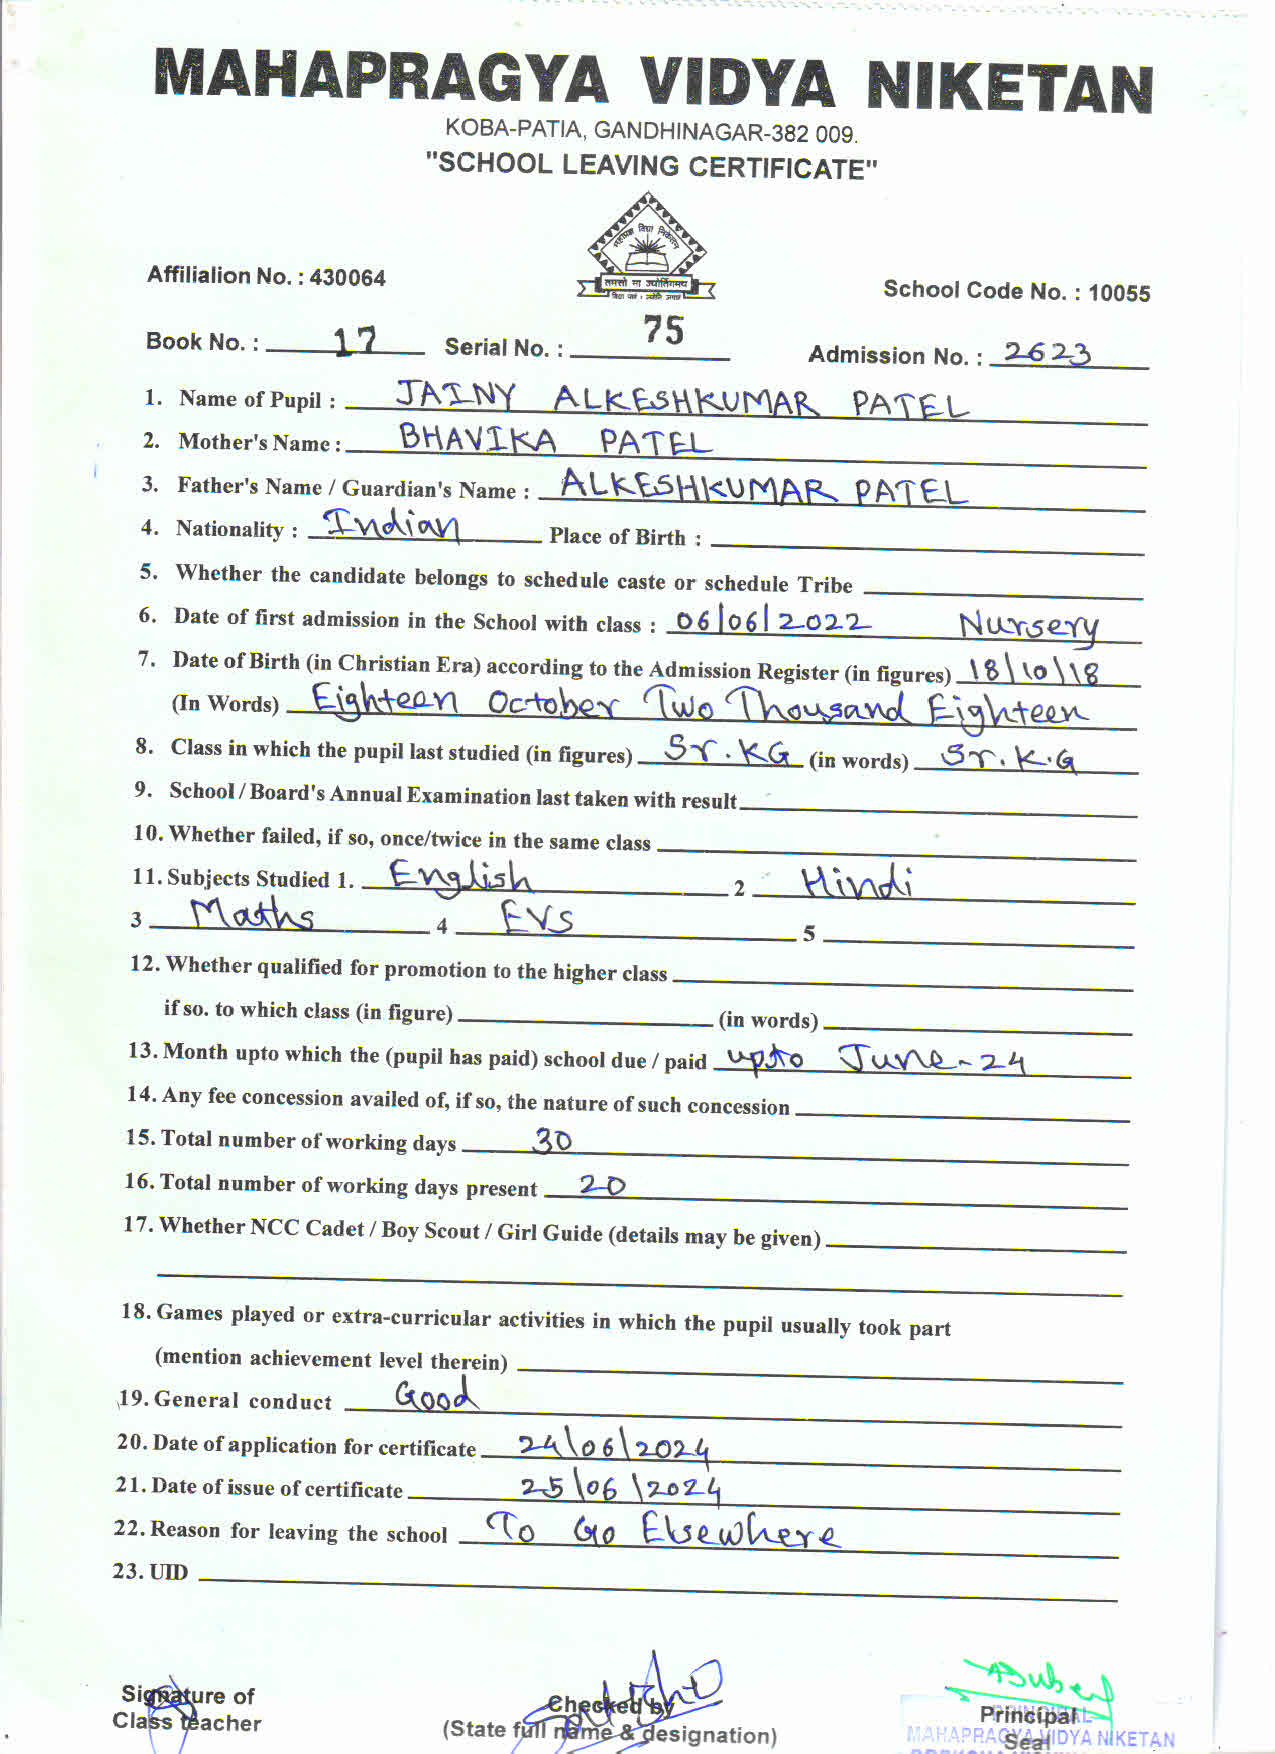 MAHAPRAGYA VIDYA NIKETAN
KOBA-PATIA, GANDHINAGAR-382 009.
"SCHOOL LEAVING CERTIFICATE"
महाप्रज्ञ विद्या निकेतन
तमसो मा ज्योतिर्गमय
Affilialion No. : 430064
School Code No. : 10055
Book No. : 17 Serial No. : 75 Admission No. : 2623
1. Name of Pupil : JAINY ALKESHKUMAR PATEL
2. Mother's Name : BHAVIKA PATEL
3. Father's Name / Guardian's Name : ALKESHKUMAR PATEL
4. Nationality : Indian Place of Birth :
5. Whether the candidate belongs to schedule caste or schedule Tribe
6. Date of first admission in the School with class : 06/06/2022 Nursery
7. Date of Birth (in Christian Era) according to the Admission Register (in figures) 18/10/18
(In Words) Eighteen October Two Thousand Eighteen
8. Class in which the pupil last studied (in figures) Sr.KG (in words) Sr.K.G
9. School / Board's Annual Examination last taken with result
10. Whether failed, if so, once/twice in the same class
11. Subjects Studied 1. English 2 Hindi
3 Maths 4 EVS 5
12. Whether qualified for promotion to the higher class
if so. to which class (in figure) (in words)
13. Month upto which the (pupil has paid) school due / paid upto June-24
14. Any fee concession availed of, if so, the nature of such concession
15. Total number of working days 30
16. Total number of working days present 20
17. Whether NCC Cadet / Boy Scout / Girl Guide (details may be given)
18. Games played or extra-curricular activities in which the pupil usually took part
(mention achievement level therein)
19. General conduct Good
20. Date of application for certificate 24\06\2024
21. Date of issue of certificate 25\06\2024
22. Reason for leaving the school To Go Elsewhere
23. UID
Signature of
Class teacher
Checked by
(State full name & designation)
Principal
Seal
PRINCIPAL
MAHAPRAGYA VIDYA NIKETAN